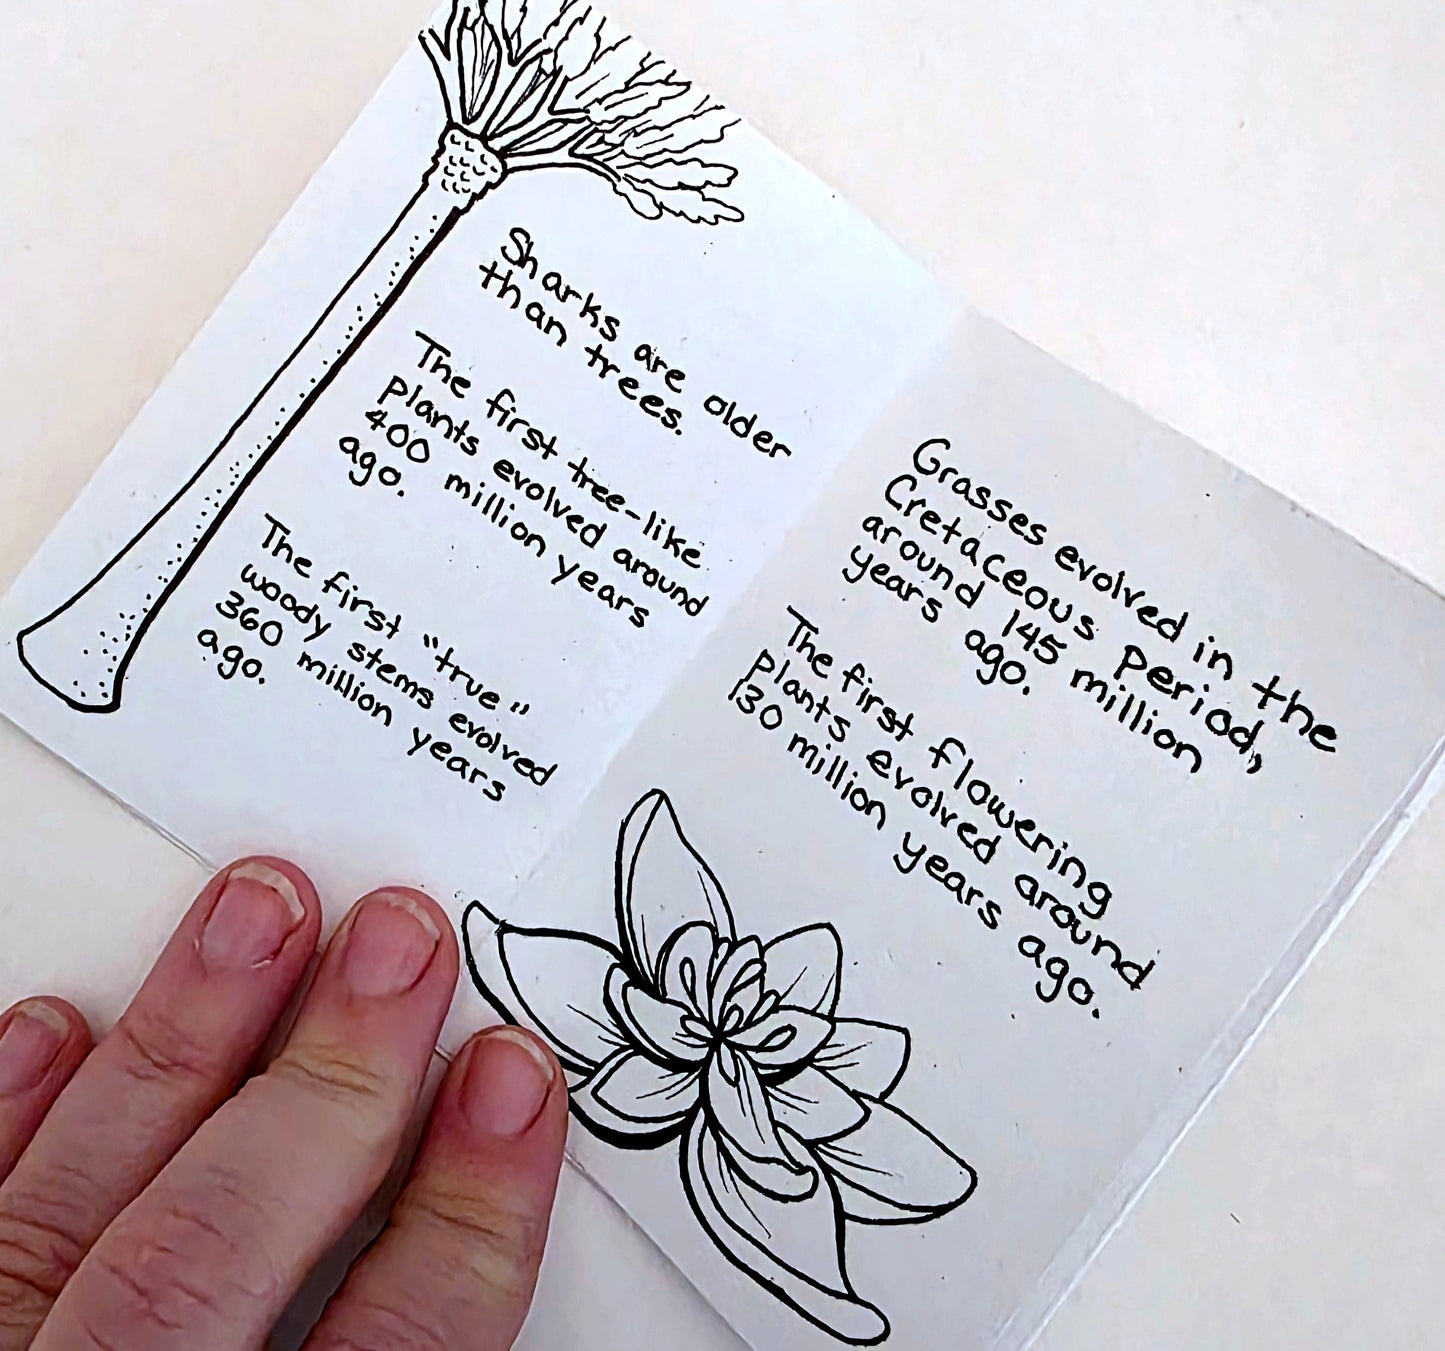 Sharks are older
than trees.
The first tree-like
plants evolved around
400 million years
ago.
The first "true"
woody stems evolved
360 million years
ago.
Grasses evolved in the
Cretaceous Period,
around 145 million
years ago.
The first flowering
plants evolved around
130 million years ago.